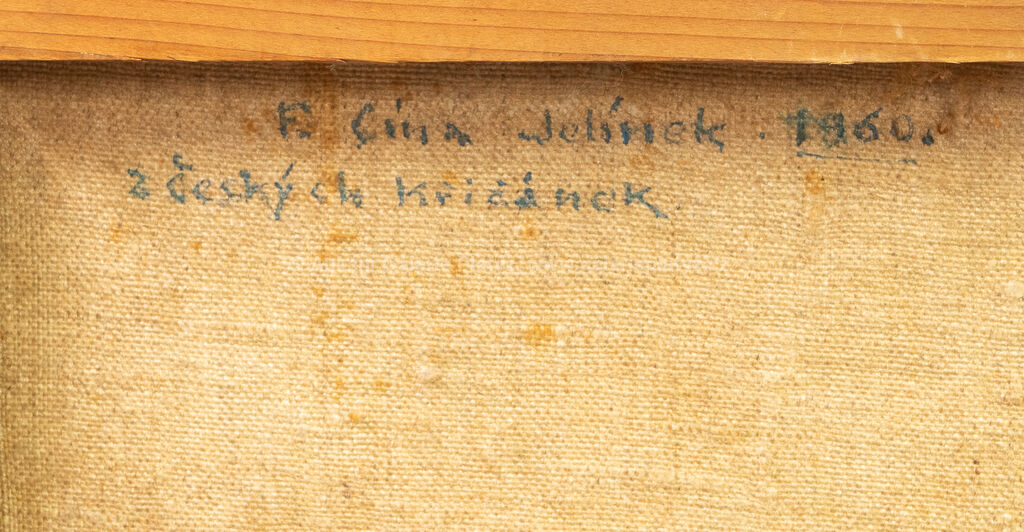 F. Cína Jelínek. 1960.
z Českých Křižánek.